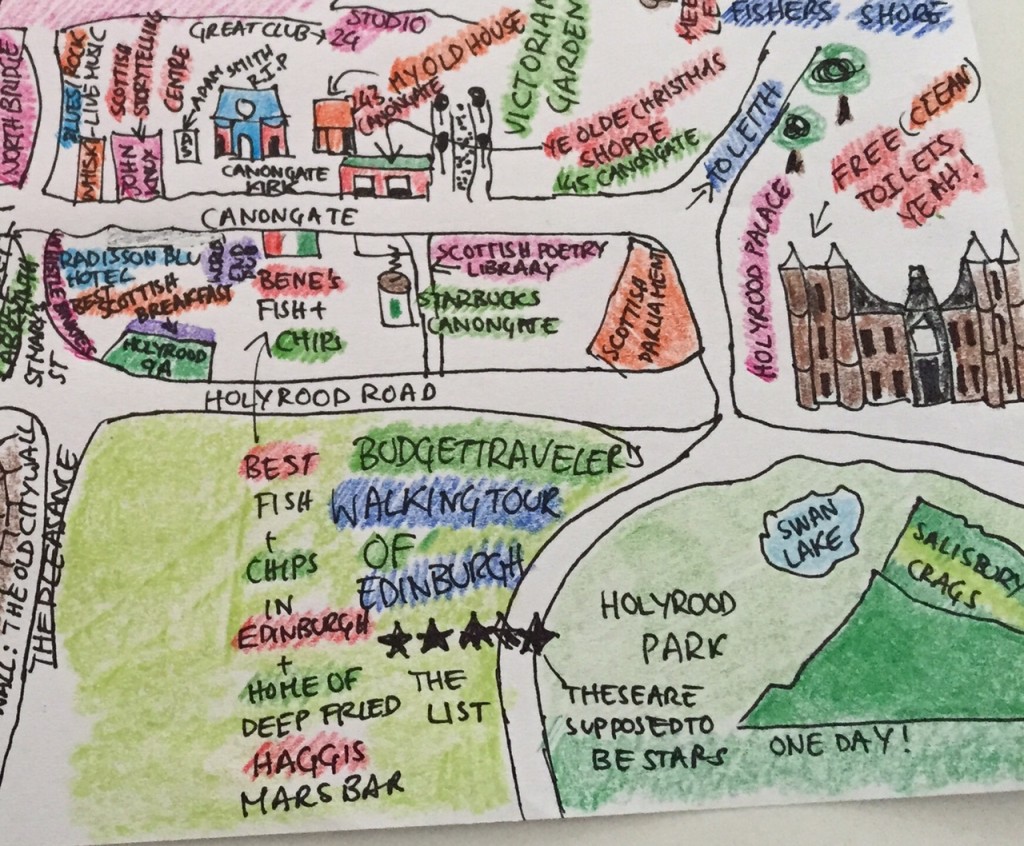 GREAT CLUB→
STUDIO
24
VICTORIAN
GARDEN
FISHERS SHORE
NORTH BRIDGE
BLUES ROCK
-LIVE MUSIC
WHISKI
SCOTTISH
STORYTELLING
CENTRE
JOHN
KNOX
ADAM SMITH
R.I.P
CANONGATE
KIRK
MY OLD HOUSE
243
CANONGATE
YE OLDE CHRISTMAS
SHOPPE
145 CANONGATE
TO LEITH
FREE (CLEAN)
TOILETS
YEAH!
HOLYROOD PALACE
CANONGATE
ST MARY'S
ST
RADISSON BLU
HOTEL
WORLD
END
PUB
BEST
SCOTTISH
BREAKFAST
HOLYROOD
9A
BENE'S
FISH +
CHIPS
SCOTTISH POETRY
LIBRARY
STARBUCKS
CANONGATE
SCOTTISH
PARLIAMENT
HOLYROOD ROAD
WALL: THE OLD CITY WALL
THE PLEASANCE
BEST
FISH
+
CHIPS
IN
EDINBURGH
+
HOME OF
DEEP FRIED
HAGGIS
MARS BAR
BUDGETTRAVELER'S
WALKING TOUR
OF
EDINBURGH
★★★★★
THE
LIST
SWAN
LAKE
SALISBURY
CRAGS
HOLYROOD
PARK
THESE ARE
SUPPOSED TO
BE STARS
ONE DAY!